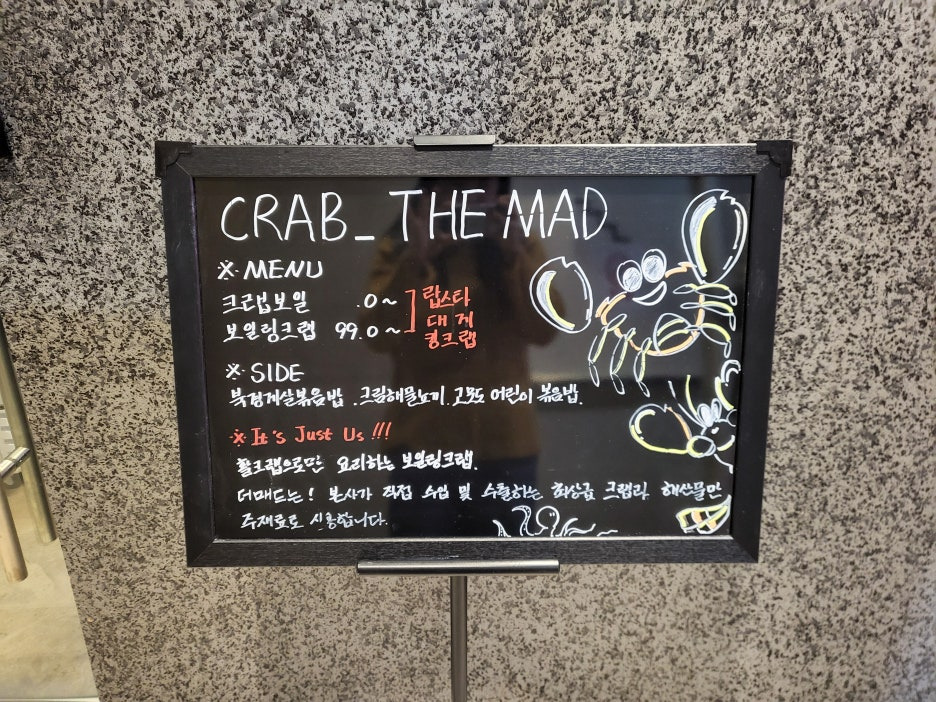 CRAB_THE MAD
※ MENU
크런법보일 .0~
보일링크랩 99.0~
랍스타
대게
킹크랩
※ SIDE
북경게살볶음밥. 크림해물뇨끼. 고모도 어린이 볶음밥.
※ It's Just Us !!!
활크랩으로만 요리하는 보일링크랩.
더매드는! 본사가 직접 수입 및 수출하는 최상급 크랩과 해산물만
주재료로 사용합니다.